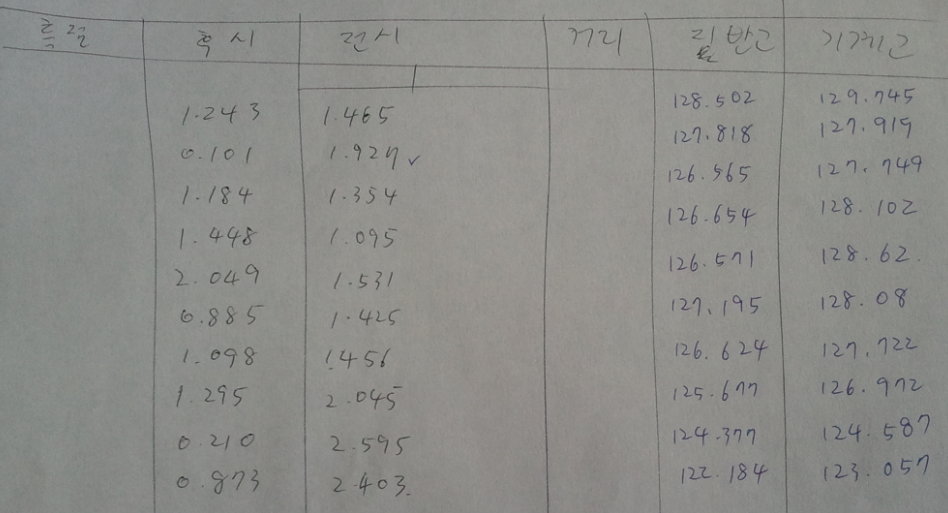 측점 후시 전시 거리 지반고 기계고
1.243 1.465 128.502 129.745
0.101 1.927 127.818 127.919
1.184 1.354 126.565 127.749
1.448 1.095 126.654 128.102
2.049 1.531 126.571 128.62.
0.885 1.425 127.195 128.08
1.098 1.456 126.624 127.722
1.295 2.045 125.677 126.972
0.210 2.595 124.377 124.587
0.873 2.403. 122.184 123.057